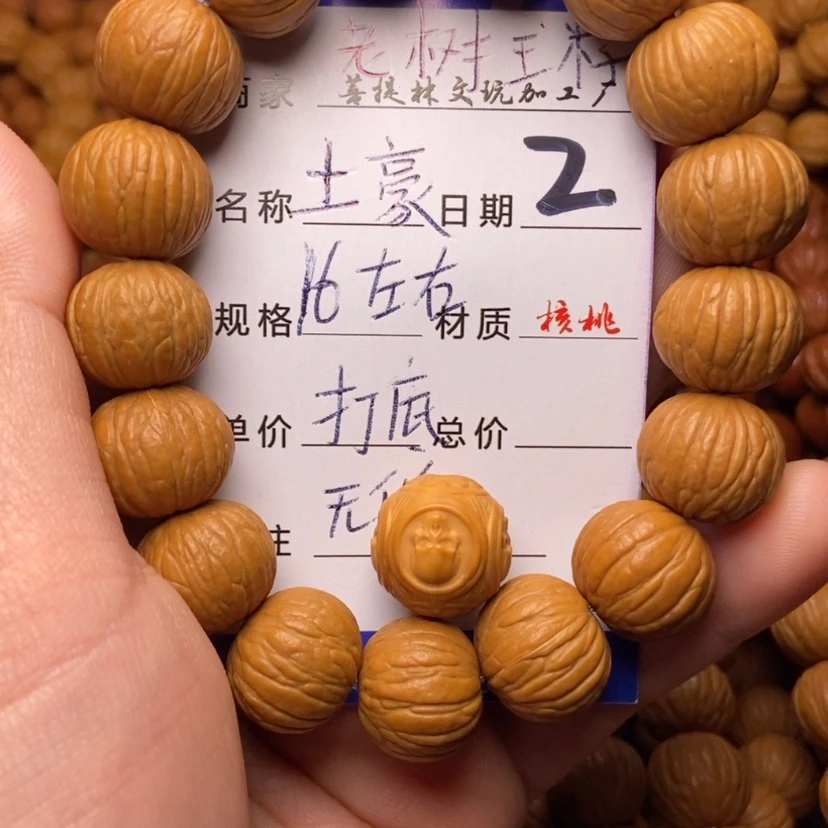 老树王籽
商家 菩提林文玩加工厂
名称 土豪 日期 2
规格 16左右 材质 核桃
单价 打底 总价
注 无